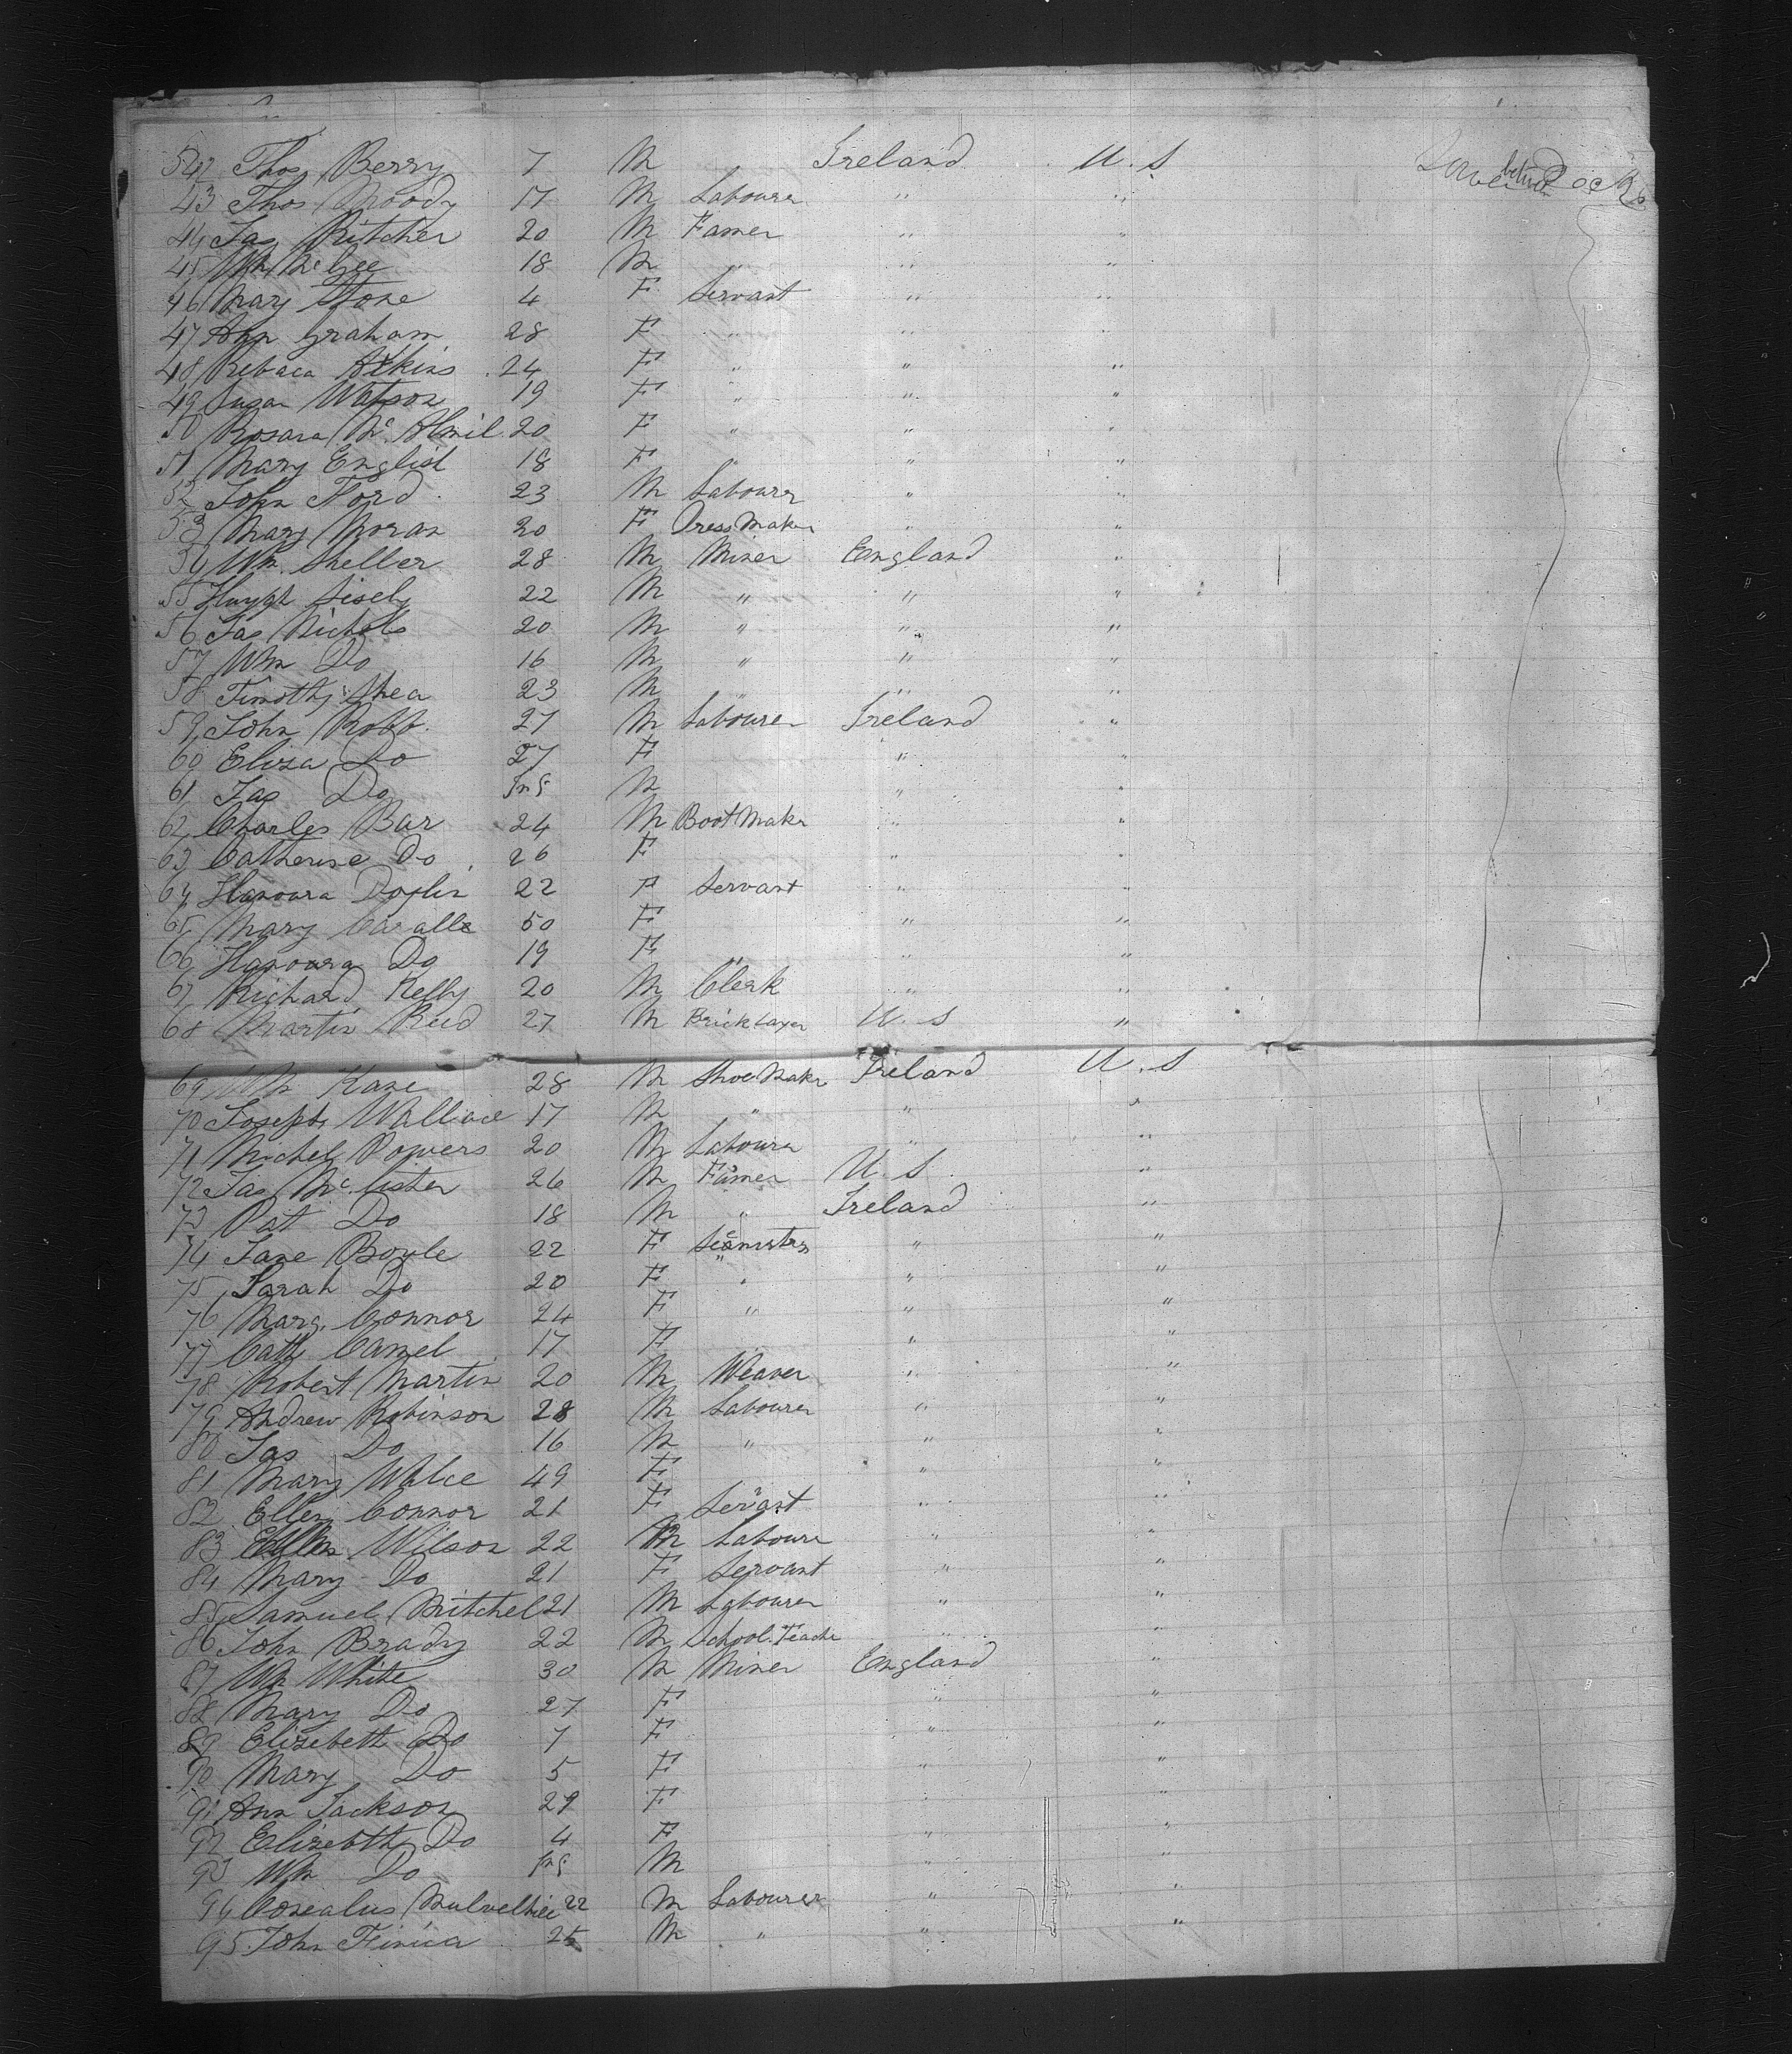 542 Thos Berry 7 M Ireland U. S
Lower between Decks
43 Thos Moody 17 M Labourer " "
44 Jas Ritcher 20 M Famer " "
45 Wm McGee 18 M " " "
46 Mary Stone 4 F Servant " "
47 Ann Graham 28 F " " "
48 Rebaca Atkins 24 F " " "
49 Susan Watson 19 F " " "
50 Rosara Mc 20 F " " "
51 Mary English 18 F " " "
52 John Ford 23 M Labourer " "
53 Mary Moran 20 F Dress Maker " "
54 Wm. Sheller 28 M Miner England "
55 Hugh Sisely 22 M " " "
56 Jas Nichols 20 M " " "
57 Wm Do 16 M " " "
58 Timothy Shea 23 M " " "
59 John Robb 27 M Labourer Ireland "
60 Eliza Do 27 F " "
61 Jas Do Inf M " "
62 Charles Bar 24 M Boot Maker " "
63 Catherine Do 26 F " "
64 Hanoura 22 F Servant " "
65 Mary 50 F " "
66 Hanoura Do 19 F " "
67 Richard Kelly 20 M Clerk " "
68 Martin Reed 27 M Bricklayer U. S "
69 Wm Kane 28 M Shoe Maker Ireland U. S
70 Joseph Walliace 17 M " " "
71 Michel Powers 20 M Labourer " "
72 Jas Mc.lister 26 M Famer U. S "
73 Pat Do 18 M " Ireland "
74 Jane Boyle 22 F Seamstrss " "
75 Sarah Do 20 F " " "
76 Marg. Connor 24 F " " "
77 Cath Camel 17 F " "
78 Robert Martin 20 M Weaver " "
79 Andrew Robinson 28 M Labourer " "
80 Jas Do 16 M " " "
81 Mary Walce 49 F " "
82 Ellen Connor 21 F Servant " "
83 Wilson 22 M Labourer " "
84 Mary Do 21 F Servant " "
85 Samuel Mitchel 21 M Labourer " "
86 John Brady 22 M School. Teache " "
87 Wm White 30 M Miner England "
88 Mary Do 27 F " "
89 Elizebeth Do 7 F " "
90 Mary Do 5 F " "
91 Ann Jackson 29 F "
92 Elizebth Do 4 F " "
93 Wm Do Inf M " "
94 22 M Labourer " "
95 John 25 M " " "